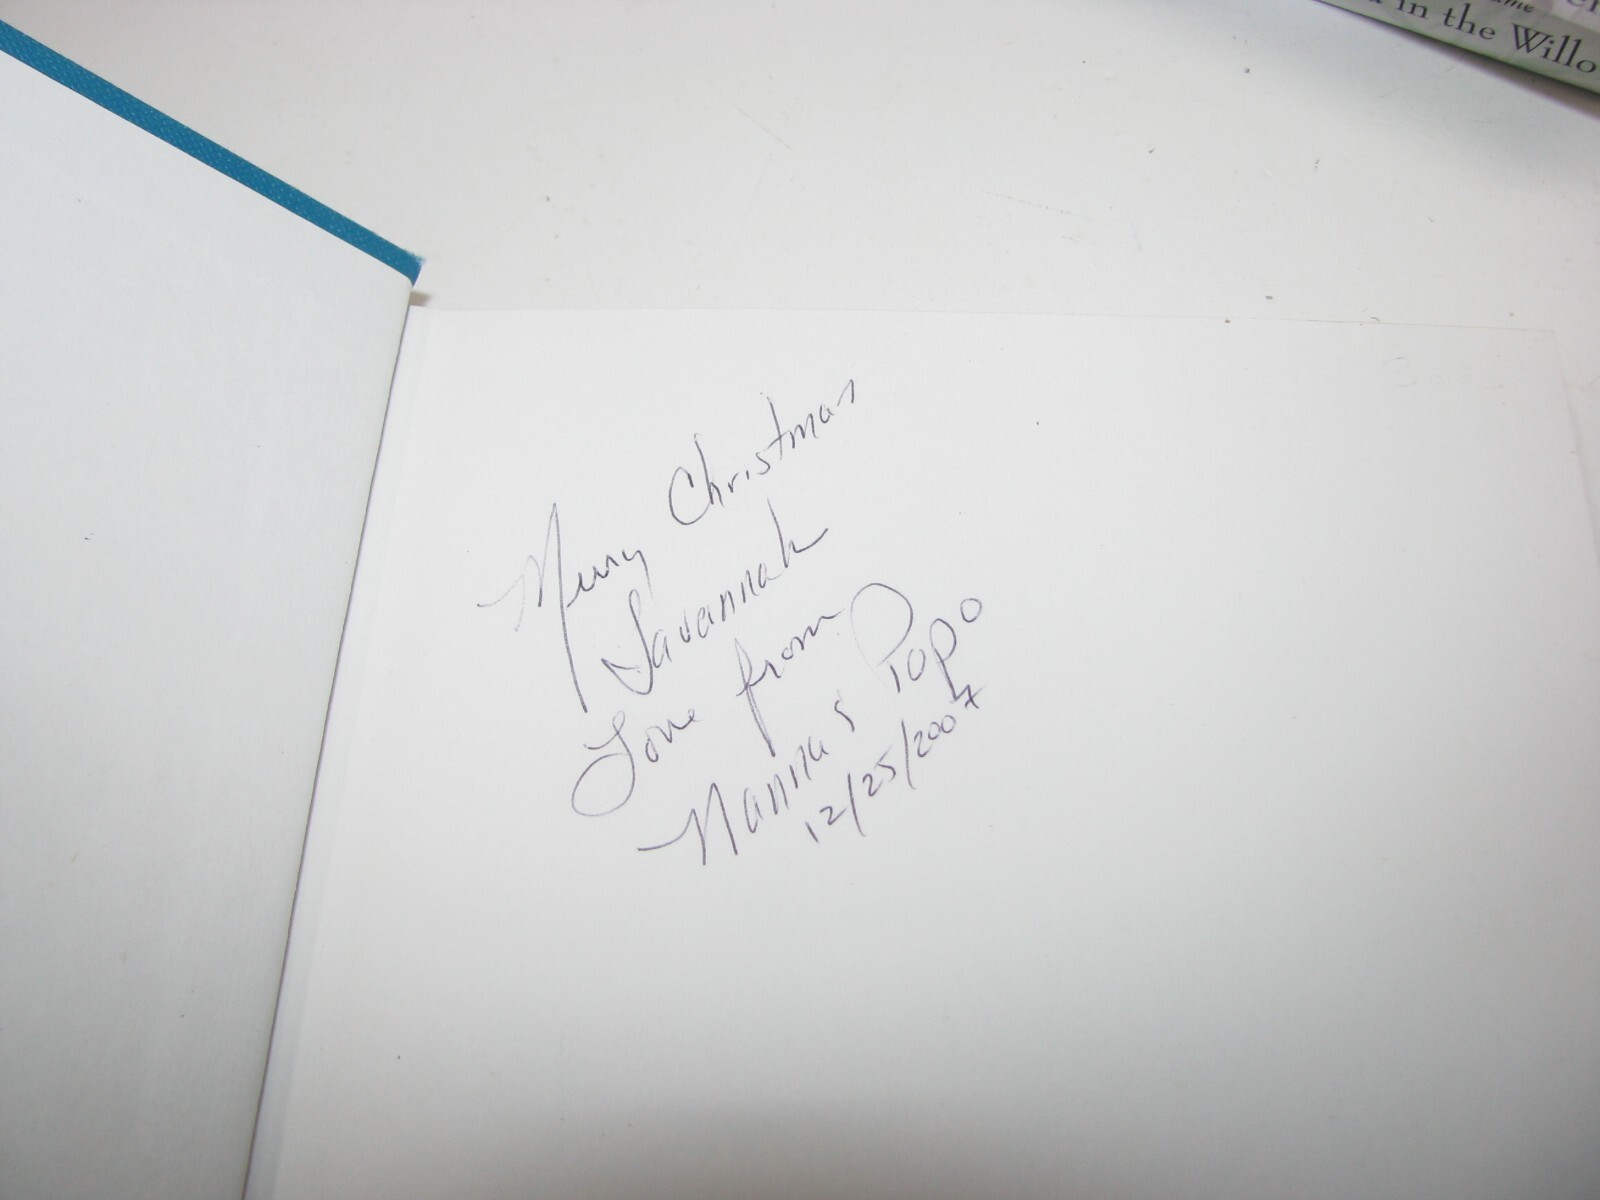 in the Willo
Merry Christmas
Savannah
Love from
Nanna & Popo
12/25/2007